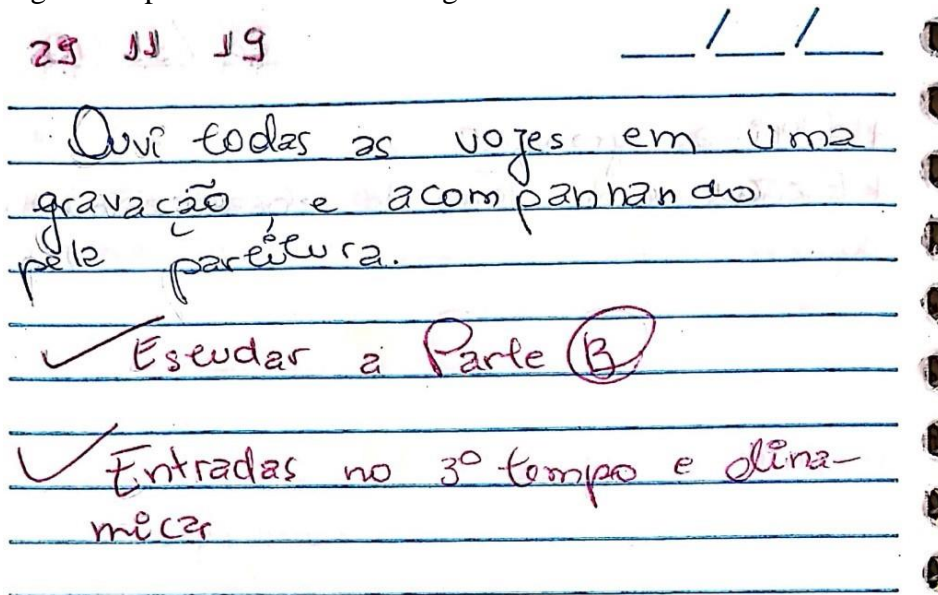 29 11 19
__/__/__
Ouvi todas as vozes em uma
gravação, e acompanhando
pela partitura.
✓ Estudar a Parte B
✓ Entradas no 3º tempo e dina-
micas